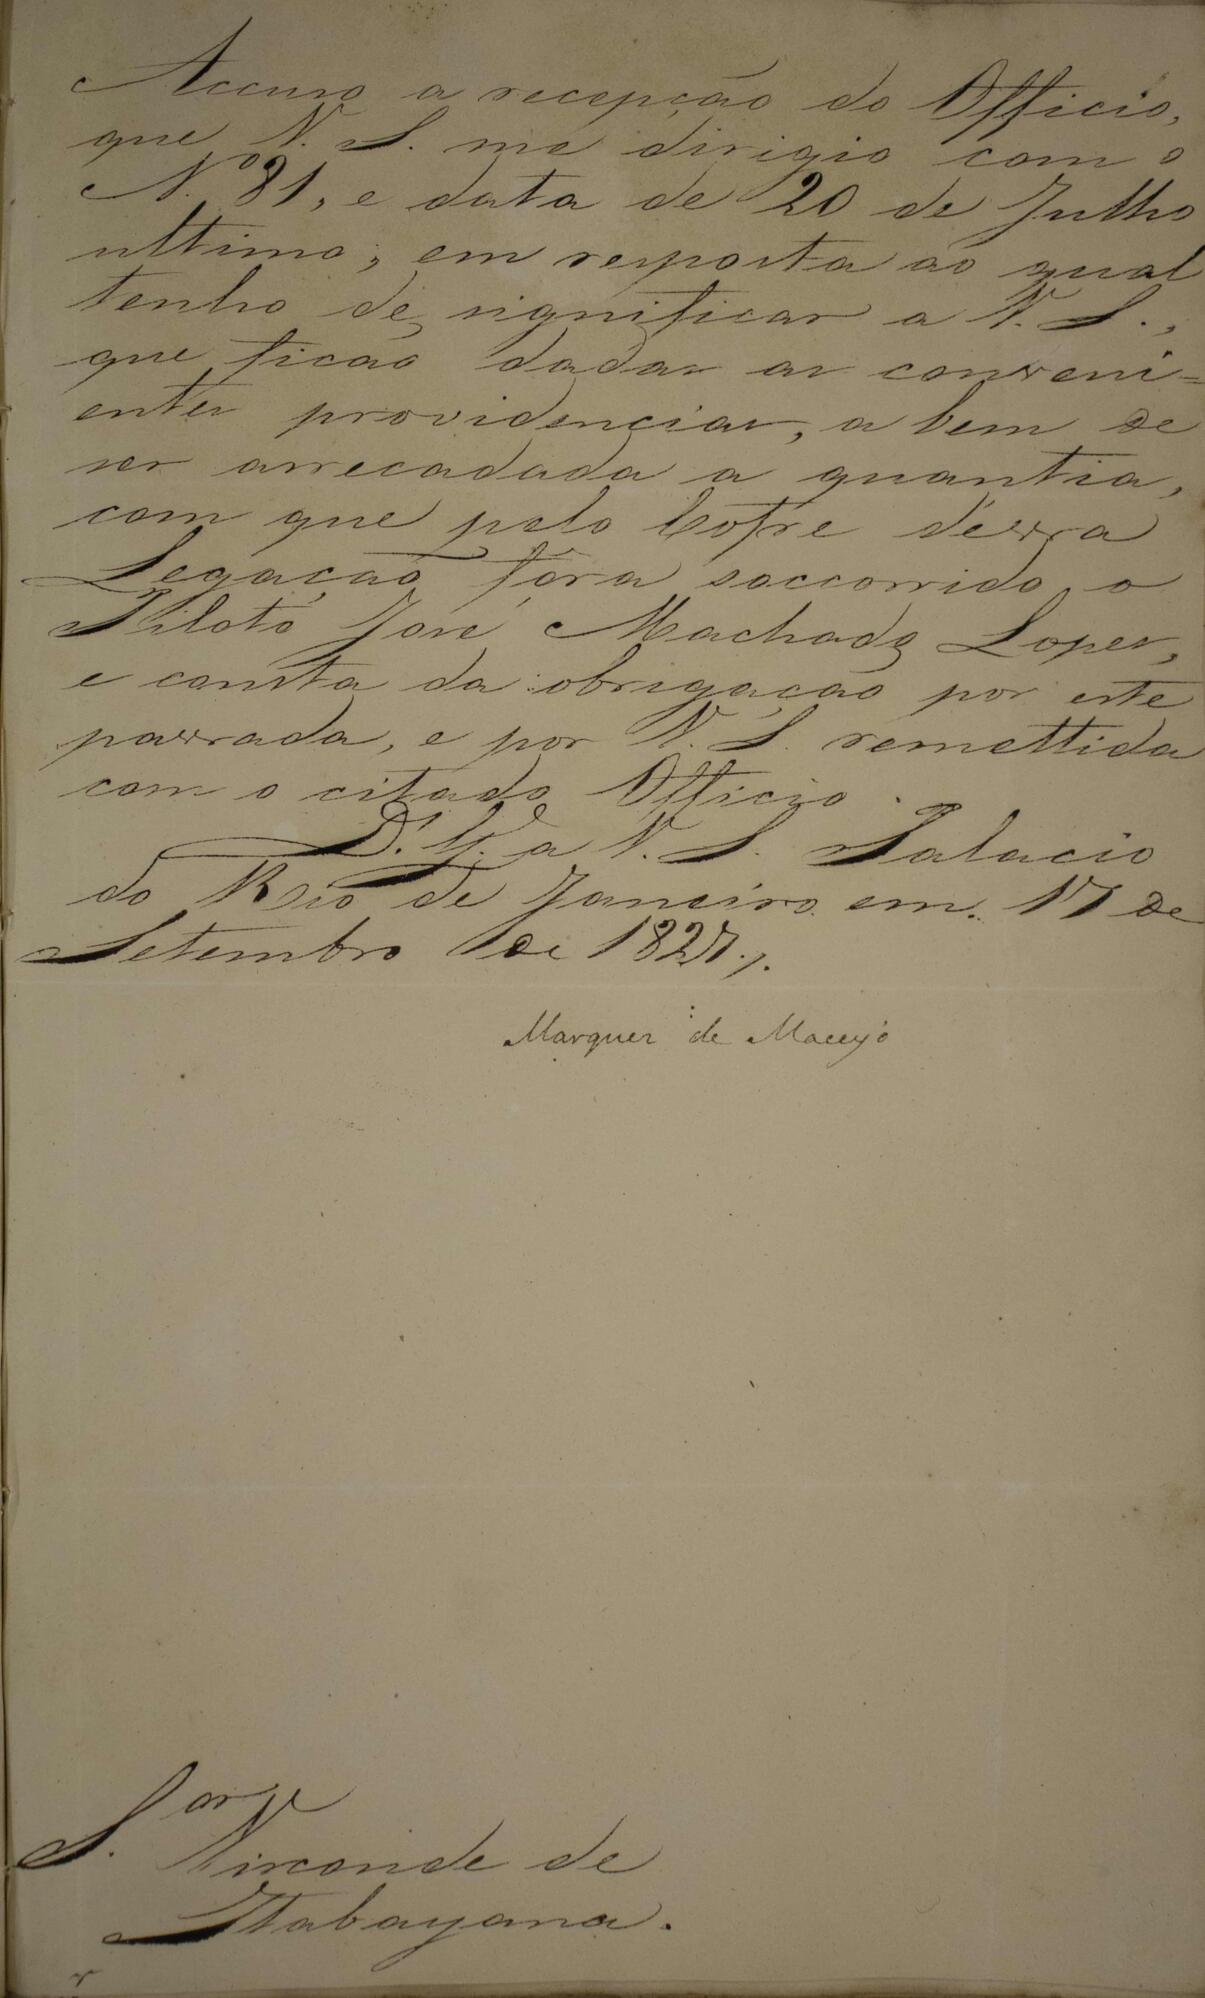 Accuso a recepção do Officio,
que V. S. me dirigio com o
N.º 81, e data de 20 de Julho
ultimo; em resposta ao qual
tenho de significar a V. S.,
que ficão dadas as conveni=
entes providencias, a bem de
ser arrecadada a quantia,
com que pelo Cofre dessa
Legação fôra soccorrido o
Piloto José Machado Lopes,
e consta da obrigação por este
passada, e por V. S. remettida
com o citado Officio.
D.s G.e a V. S. Palacio
do Rio de Janeiro em 17 de
Setembro de 1827./.
Marquez de Maceyó
S.or Visconde de
Itabayana.